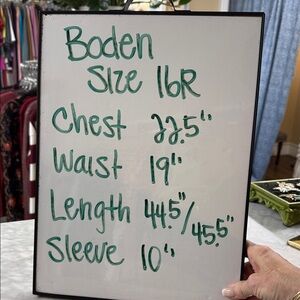 Boden
Size 16R
Chest 22.5"
Waist 19"
Length 44.5"/45.5"
Sleeve 10"